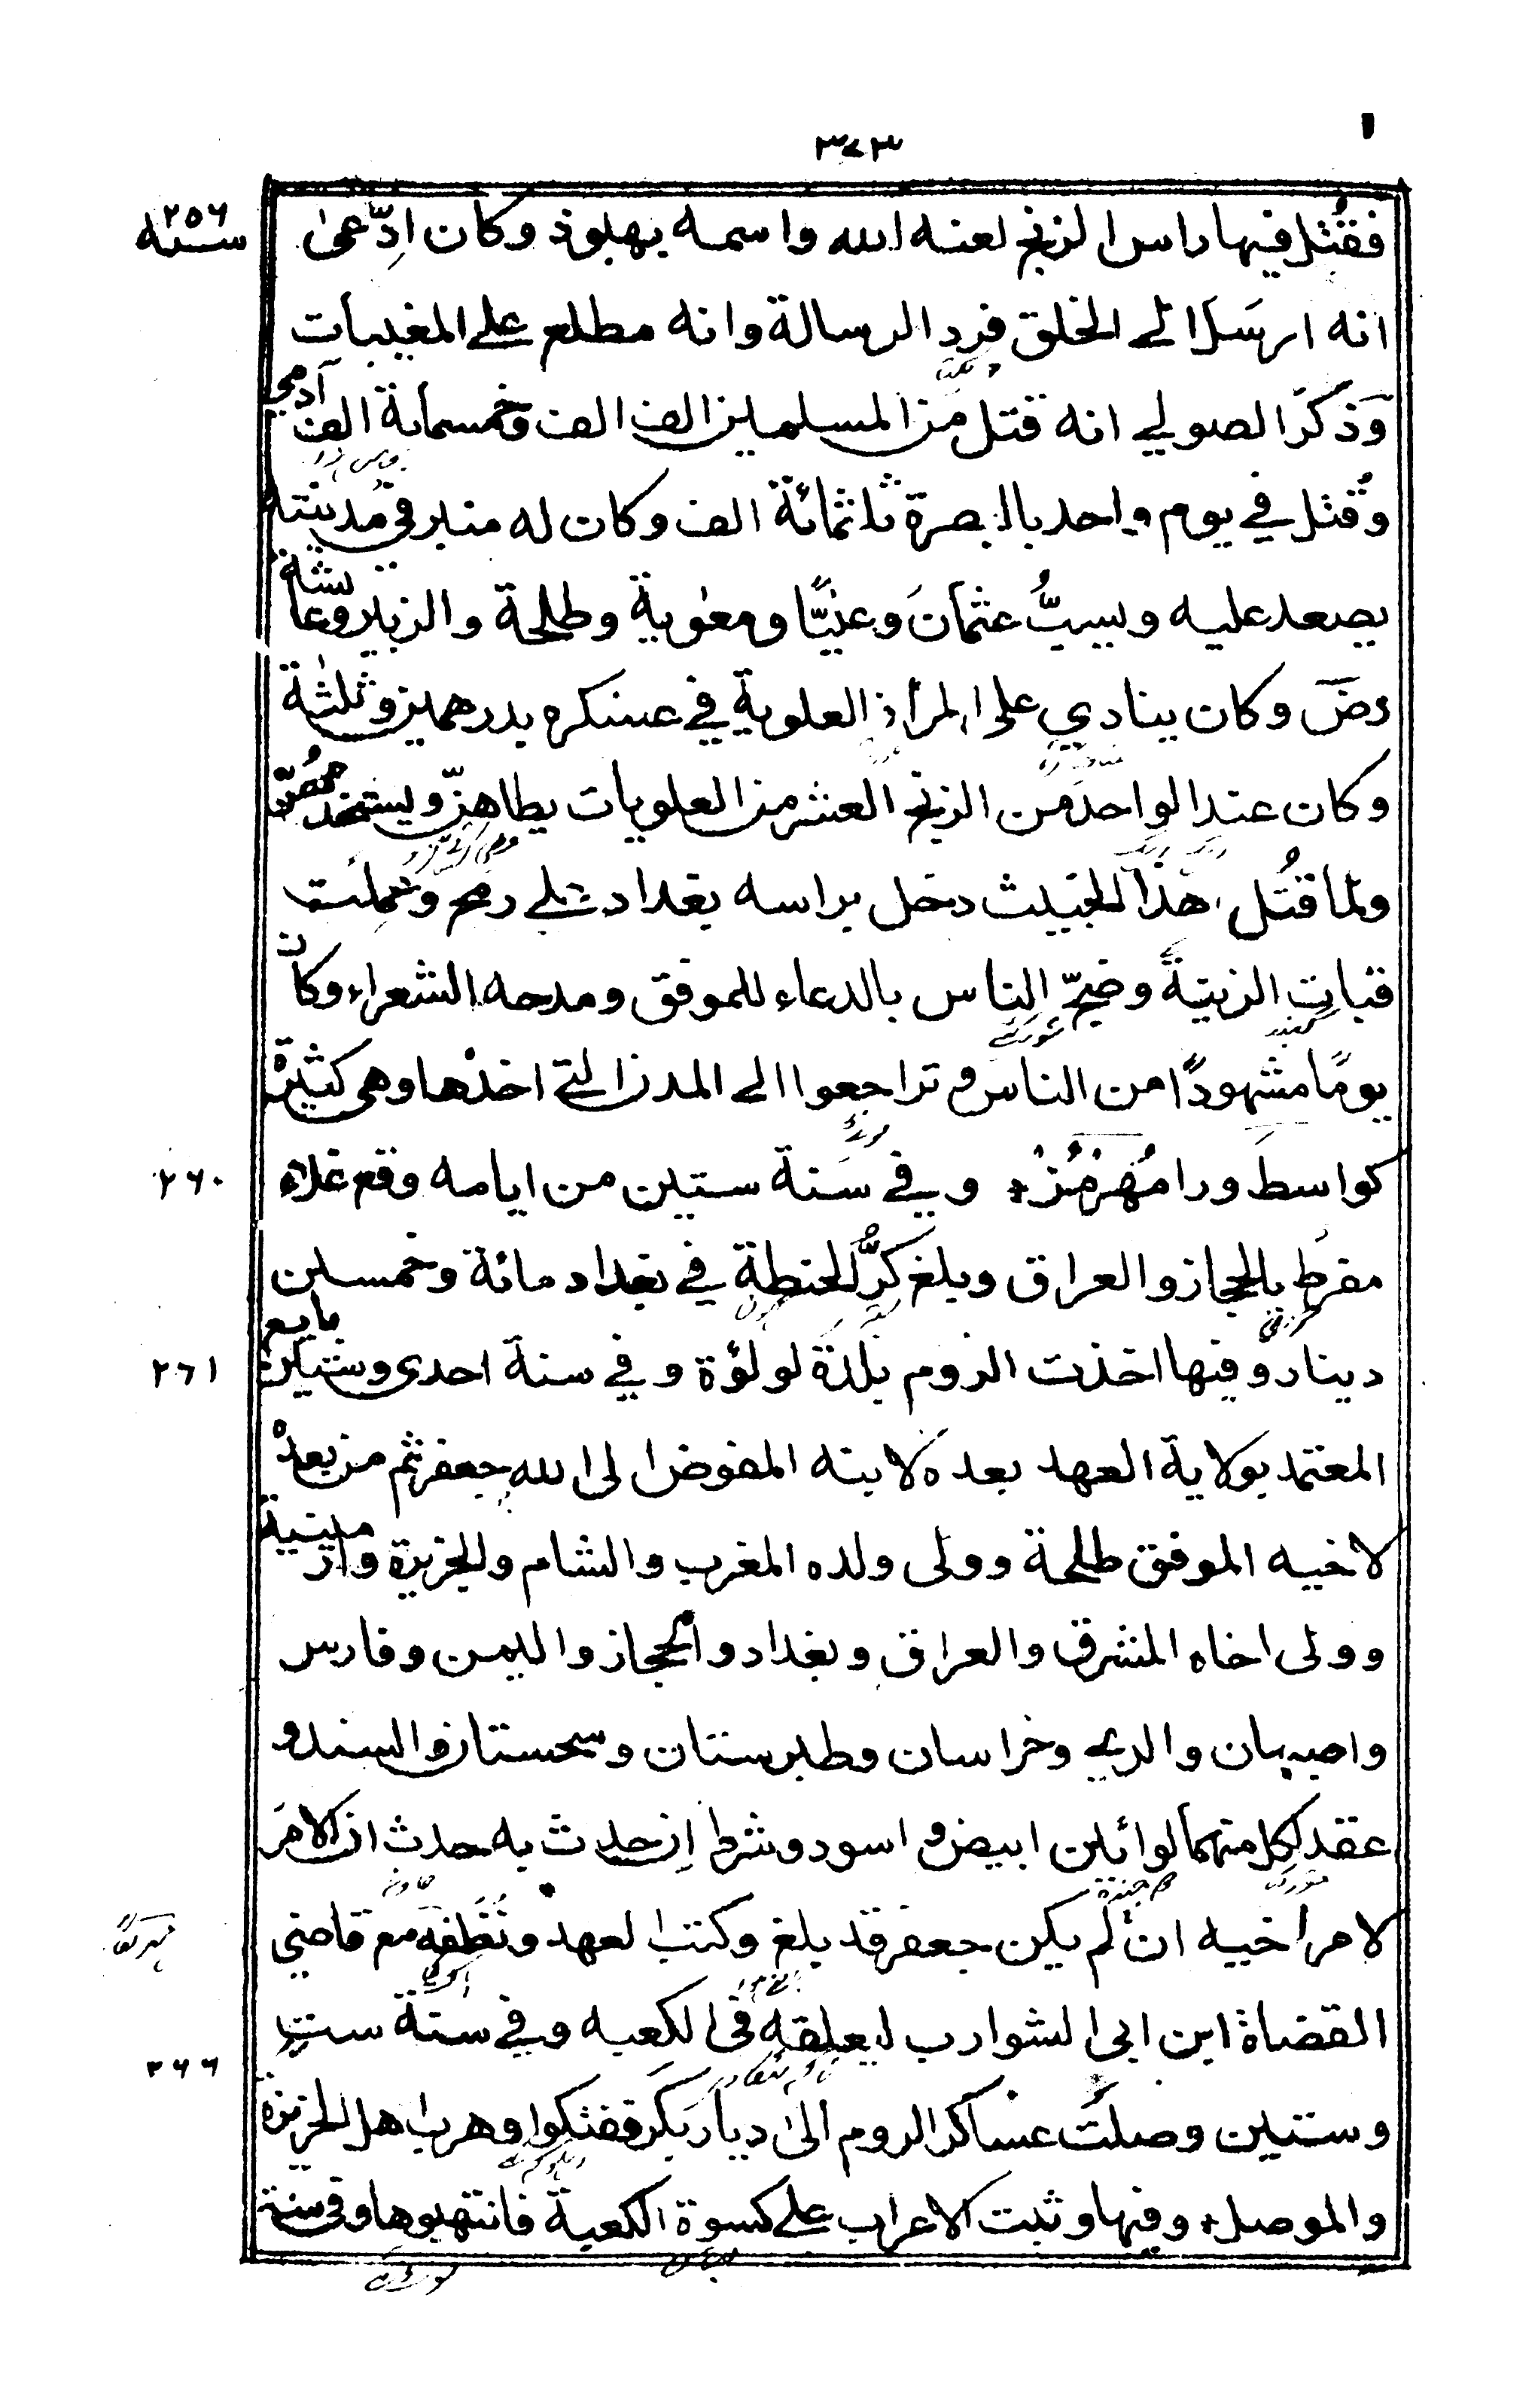 ٣٧٣
سنه ٢٥٦
فقُتل فيها راس الزنج لعنه الله واسمه بهلوذ وكان ادّعى
انه ارسل الے الخلق فرد الرسالة وانه مطلع علے المغيبات
وَذكر الصولے انه قتل من المسلمين الف الف وخمسمائة الف آدمي
وقتل في يوم واحد بالبصرة ثلثمائة الف وكان له منبر في مدينته
يصعد عليه ويسبُّ عثمانَ وعليًّا ومعٰوية وطلحة والزبير وعائشة
رضَ وكان ينادي على المرأة العلوية في عسكره بدرهمين وثلٰثة
وكان عند الواحد من الزنج العشر من العلويات يطاهنّ ويستخدمهُنّ
ولما قُتل هذا الخبيث دخل براسه بغداد علے رمح وعملت
قباب الزينة وضجّ الناس بالدعاء للموفق ومدحه الشعراء وكان
يومًا مشهودًا من الناس وتراجعوا الے المدن التے اخذها وهى كثيرة
كواسط ورامهُرمُز وفي سَنة ستين من ايامه وقع غلاء
٢٦٠
مفرط بالحجاز والعراق وبلغ كرُّ الحنطة في بغداد مائة وخمسين
دينار وفيها اخذت الروم بلدة لولؤة وفي سنة احدى وستين بايع
٢٦١
المعتمد بولاية العهد بعده لابنه المفوض الى الله جعفر ثم من بعده
لاخيه الموفق طلحة وولى ولده المغرب والشام والجزيرة وارمينية
وولى اخاه المشرق والعراق وبغداد والحجاز واليمن وفارس
واصبهان والرے وخراسان وطبرستان وسجستان والسند و
عقد لكل منهما لوائين ابيض واسود وشرط اِن حدث به حدث ان الامرَ
لامر اخيه ان لم يكن جعفر قد بلغ وكتب العهد ونفذه مع قاضي
القضاة ابن ابى الشوارب ليعلقه فى الكعبه وفي سنة ستٍ
٢٦٦
وستين وصلت عساكر الروم الىٰ ديار بكر ففتكوا وهرب اهل الجزيرة
والموصل وفيها وثبت الاعراب علے كسوة الكعبة فانتهبوها وفى سنة